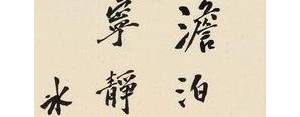 澹泊
寧靜
冰